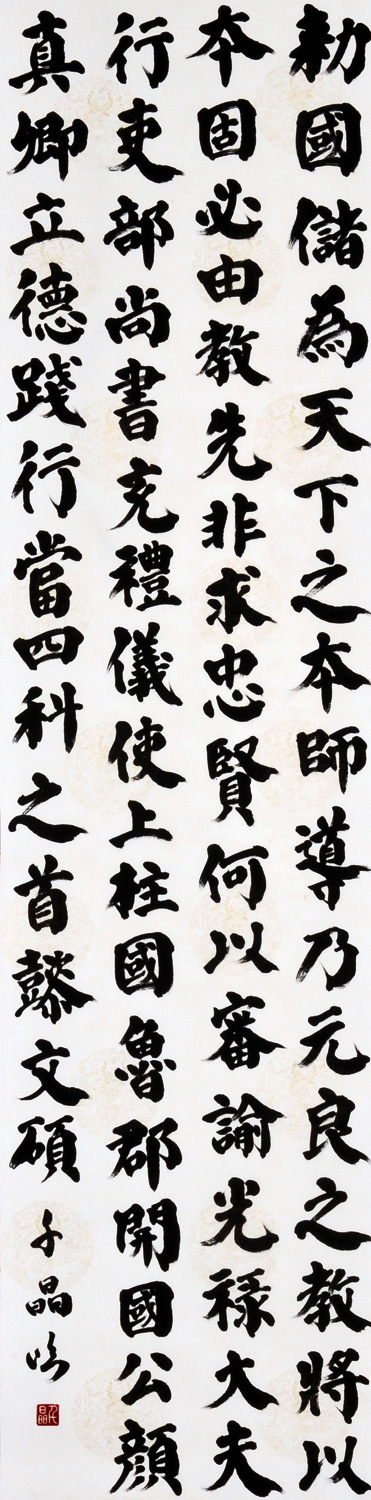 勅國儲為天下之本師導乃元良之教將以
本固必由教先非求忠賢何以審諭光祿大夫
行吏部尚書充禮儀使上柱國魯郡開國公顏
真卿立德踐行當四科之首懿文碩
晶臨